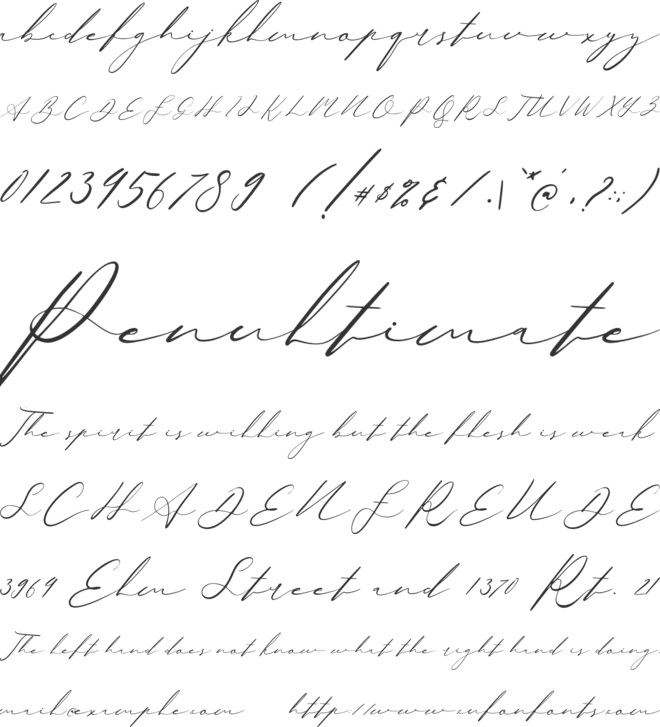 abcdefghijklmnopqrstuvwxyz
ABCDEFGHIJKLMNOPQRSTUVWXYZ
0123456789 (!#$%&/.\`*@´,?:;)
Penultimate
The spirit is willing but the flesh is weak
SCHADENFREUDE
3964 Elm Street and 1370 Rt. 21
The left hand does not know what the right hand is doing.
mail@example.com http://www.ufonfonts.com